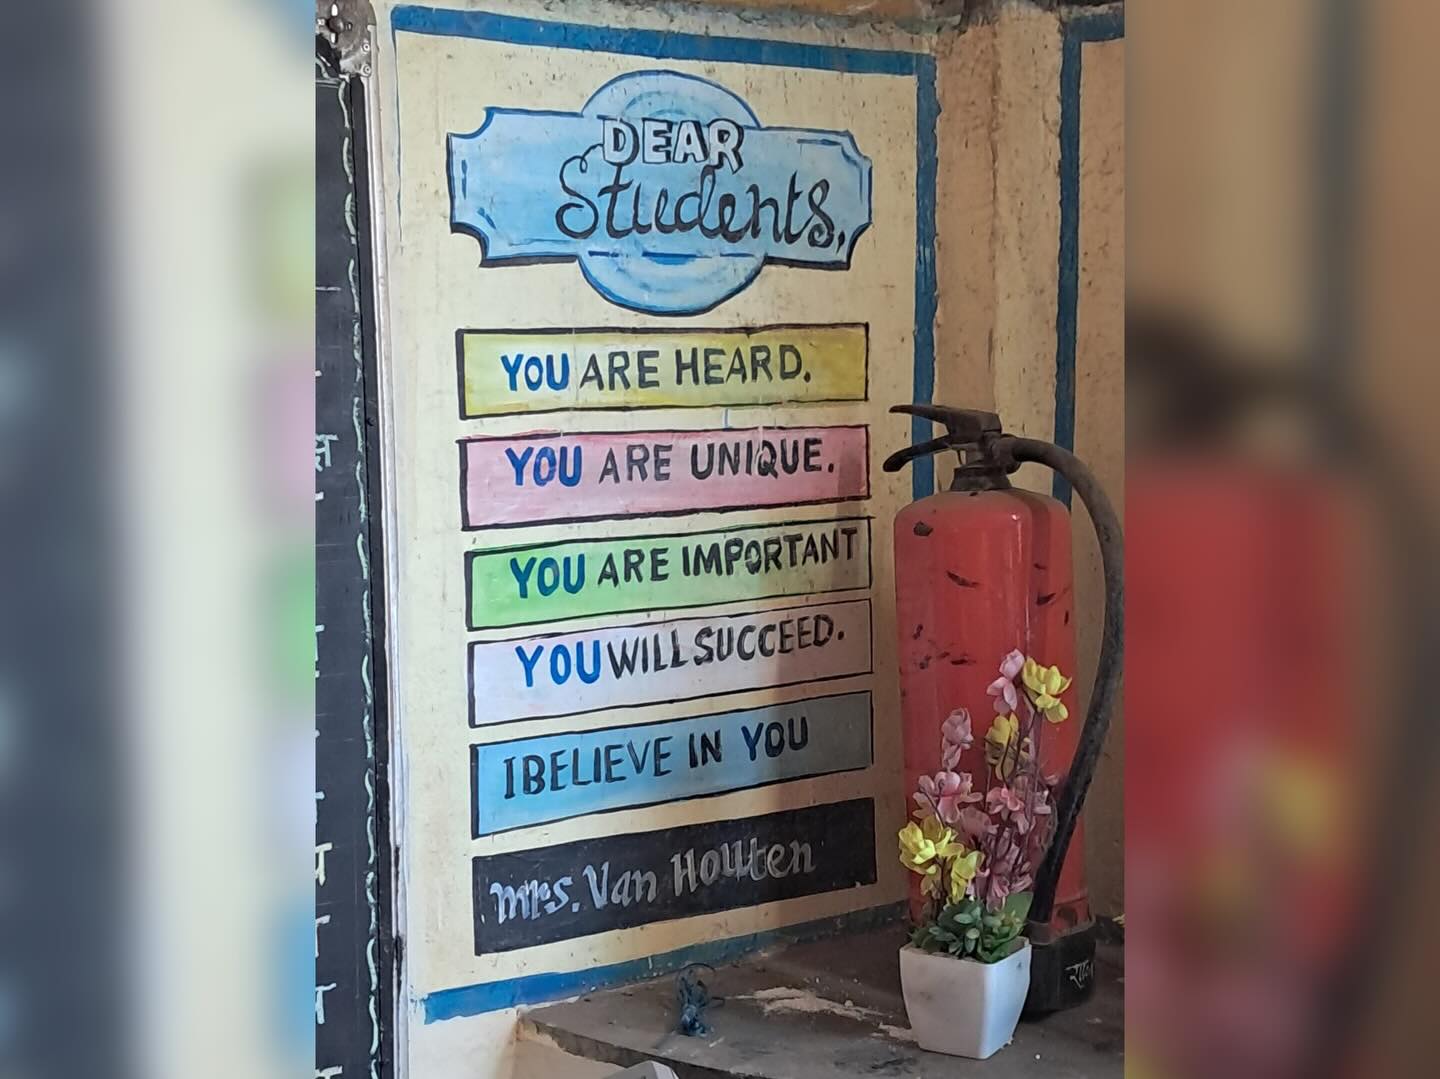 DEAR
Students,
YOU ARE HEARD.
YOU ARE UNIQUE.
YOU ARE IMPORTANT
YOU WILL SUCCEED.
I BELIEVE IN YOU
Mrs. Van Houten